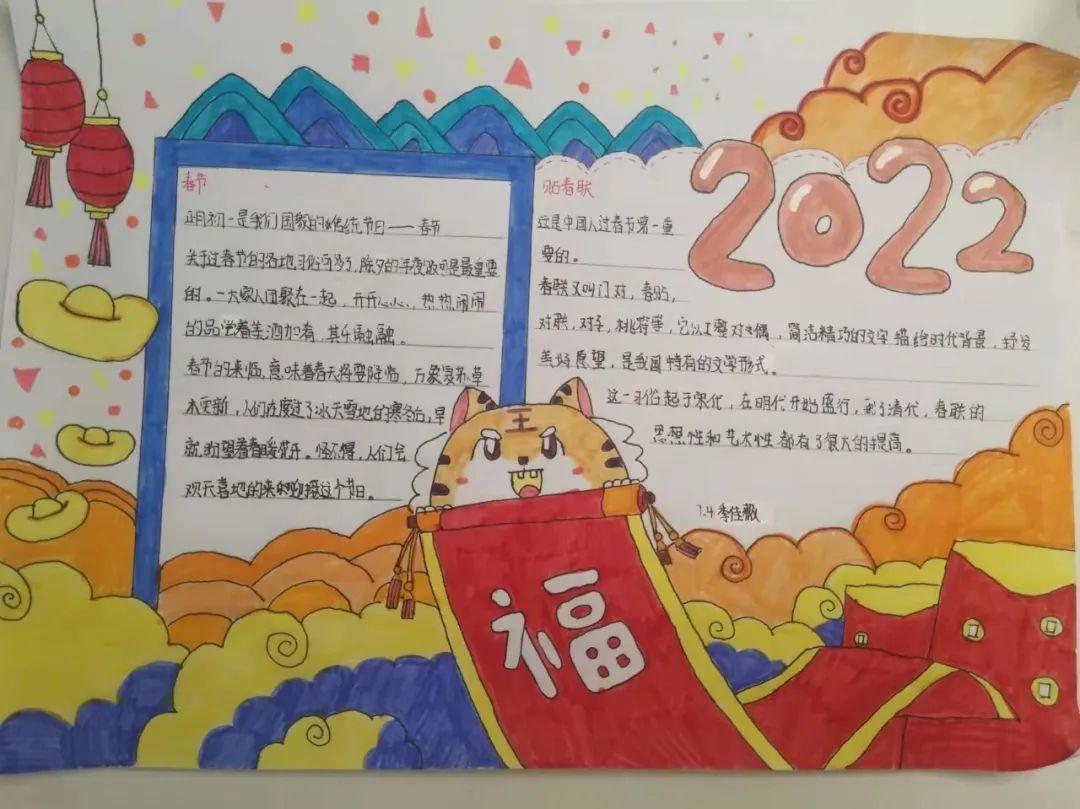 春节
正月初一是我们国家的传统节日——春节
关于过春节的各地习俗可多了,除夕的年夜饭可是最重要
的。一大家人团聚在一起,开开心心、热热闹闹
的品尝着美酒加肴,其乐融融。
春节的来临,意味着春天将要降临,万象复苏草
木更新,人们在度过了冰天雪地的寒冬治,早
就盼望着春暖花开。怪不得,人们会
欢天喜地的来迎接这个节日。
贴春联
这是中国人过春节第一重
要的。
春联又叫门对,春贴,
对联,对子,桃符等,它以工整对偶,简洁精巧的文字描绘时代背景,抒发
美好愿望,是我国特有的文学形式。
这一习俗起于宋代,在明代开始盛行,到了清代,春联的
思想性和艺术性都有了很大的提高。
7.4李佳
2022
王
福